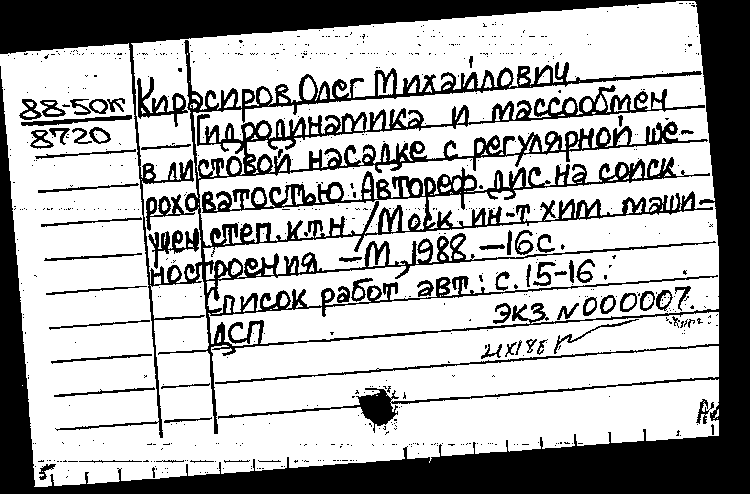 88-50к Кирасиров, Олег Михайлович.
8720 Гидродинамика и массообмен
в листовой насадке с регулярной ше-
роховатостью: Автореф. дис. на соиск.
учен. степ. к.т.н. / Моск. ин-т хим. маши-
ностроения. — М., 1988. — 16 с.
Список работ авт.: с. 15-16.
ЭКЗ. N000007.
ДСП
5